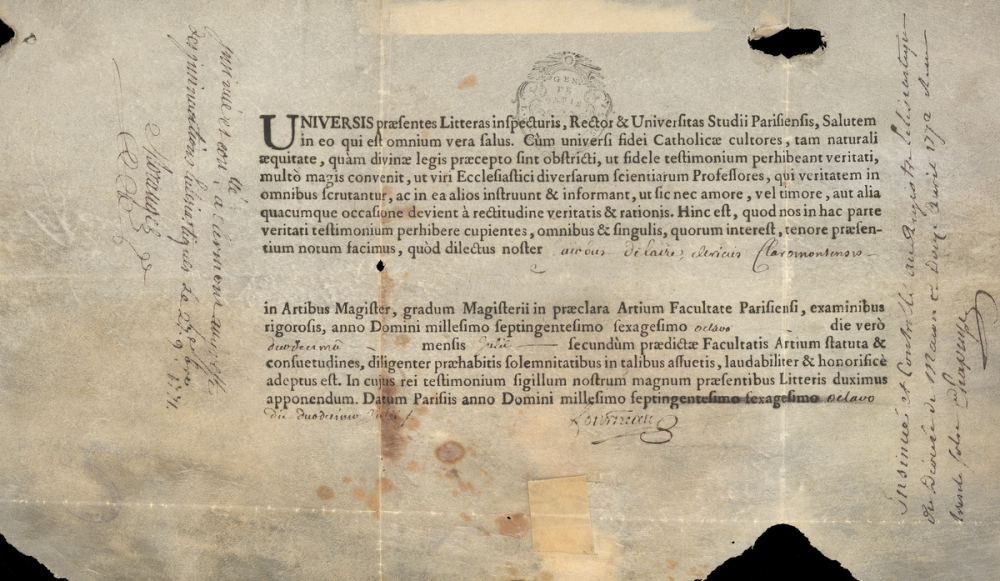 GEN.
DE
PARIS
UNIVERSIS præsentes Litteras inspecturis, Rector & Universitas Studii Parisiensis, Salutem
in eo qui est omnium vera salus. Cùm universi fidei Catholicæ cultores, tam naturali
æquitate, quàm divinæ legis præcepto sint obstricti, ut fidele testimonium perhibeant veritati,
multò magis convenit, ut viri Ecclesiastici diversarum scientiarum Professores, qui veritatem in
omnibus scrutantur, ac in ea alios instruunt & informant, ut sic nec amore, vel timore, aut alia
quacumque occasione devient à rectitudine veritatis & rationis. Hinc est, quod nos in hac parte
veritati testimonium perhibere cupientes, omnibus & singulis, quorum interest, tenore præsen-
tium notum facimus, quòd dilectus noster clericus Claromontensis
in Artibus Magister, gradum Magisterii in præclara Artium Facultate Parisiensi, examinibus
rigorosis, anno Domini millesimo septingentesimo sexagesimo octavo die verò
duodecima mensis Julii secundùm prædictæ Facultatis Artium statuta &
consuetudines, diligenter præhabitis solemnitatibus in talibus assuetis, laudabiliter & honorificè
adeptus est. In cujus rei testimonium sigillum nostrum magnum præsentibus Litteris duximus
apponendum. Datum Parisiis anno Domini millesimo septingentesimo sexagesimo octavo
die duodecimo Julii
Insinué et Controllé au Registre
du Diocèse de